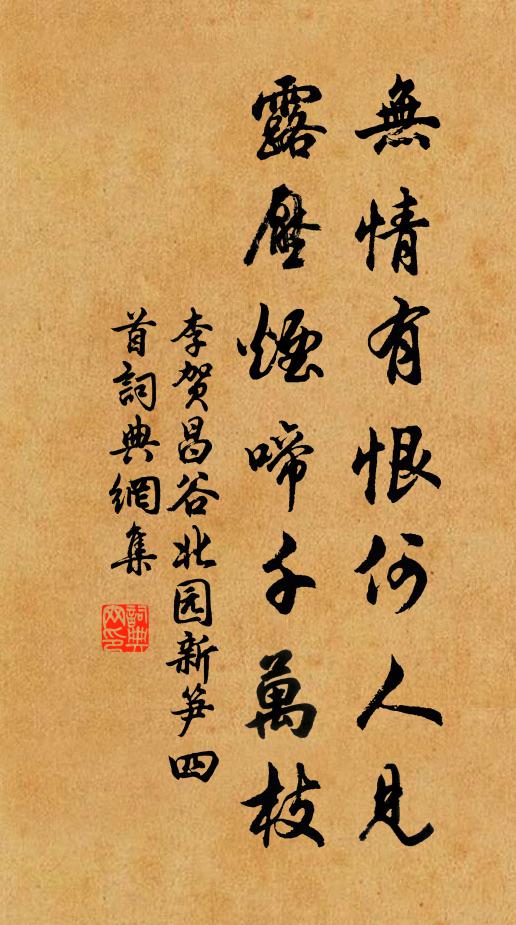 無情有恨何人見
露壓煙啼千萬枝
李贺昌谷北园新笋四
首詞典網集
詞典
网印